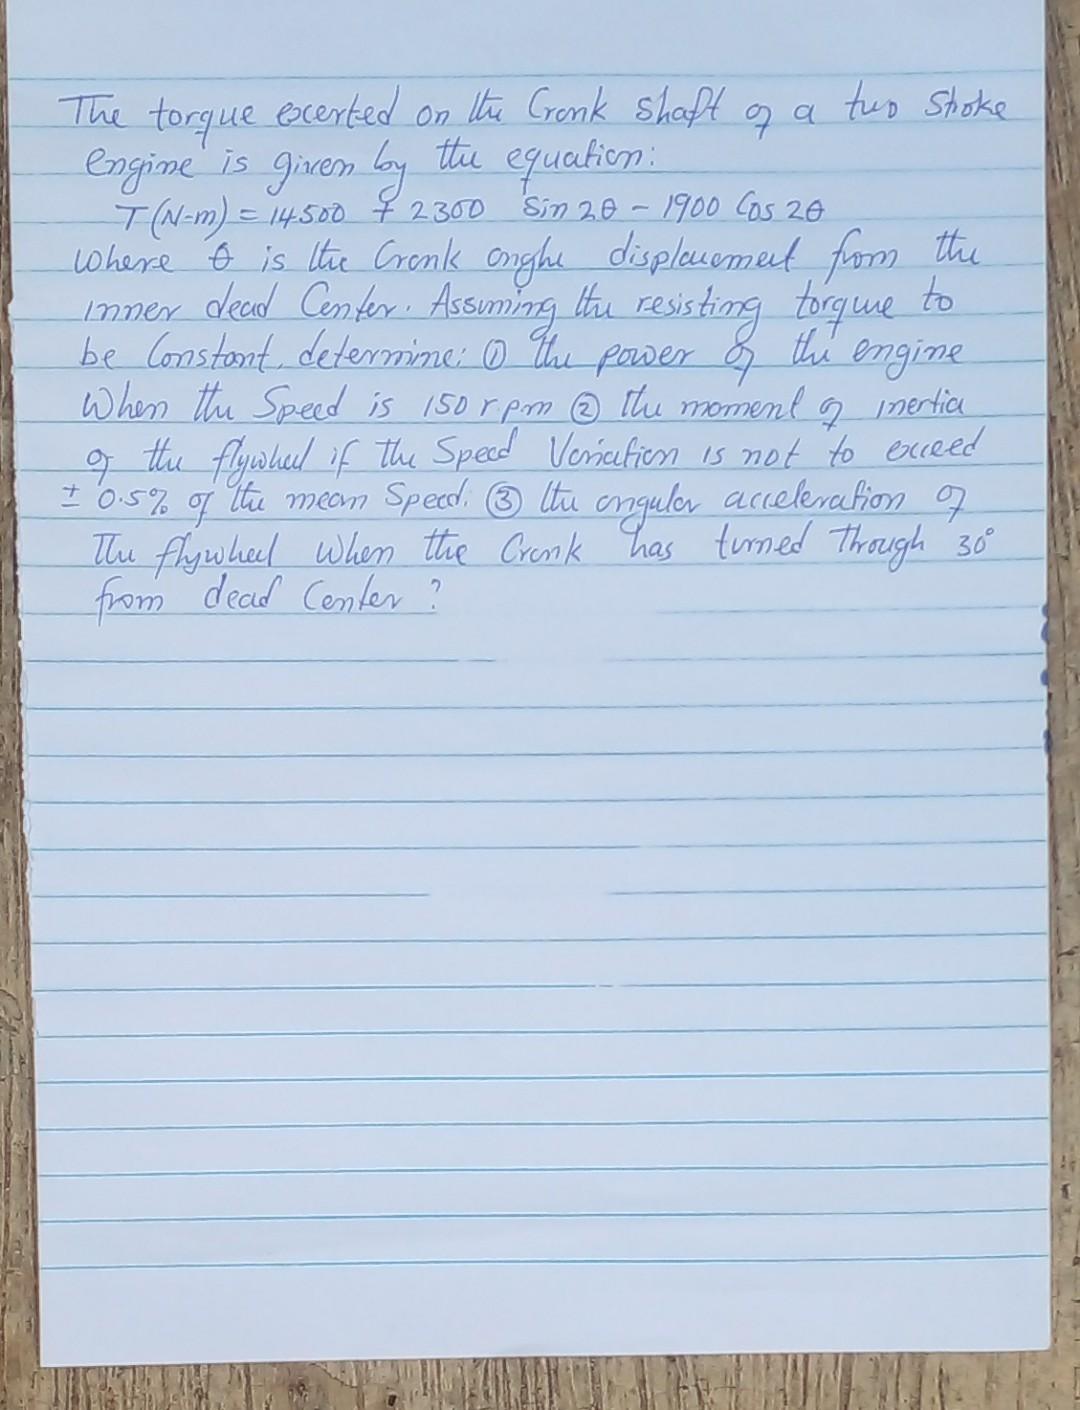 The torque excerted on the Crank shaft of a two Stroke
engine is given by the equation:
T(N-m) = 14500 + 2300 Sin 2θ - 1900 Cos 2θ
where θ is the Crank angle displacement from the
inner dead Center. Assuming the resisting torque to
be Constant, determine: ① The power of the engine
When the Speed is 150 r.p.m ② the moment of inertia
of the flywheel if the Speed Variation is not to exceed
± 0.5% of the mean Speed. ③ the angular acceleration of
The flywheel when the Crank has turned Through 30°
from dead Center ?